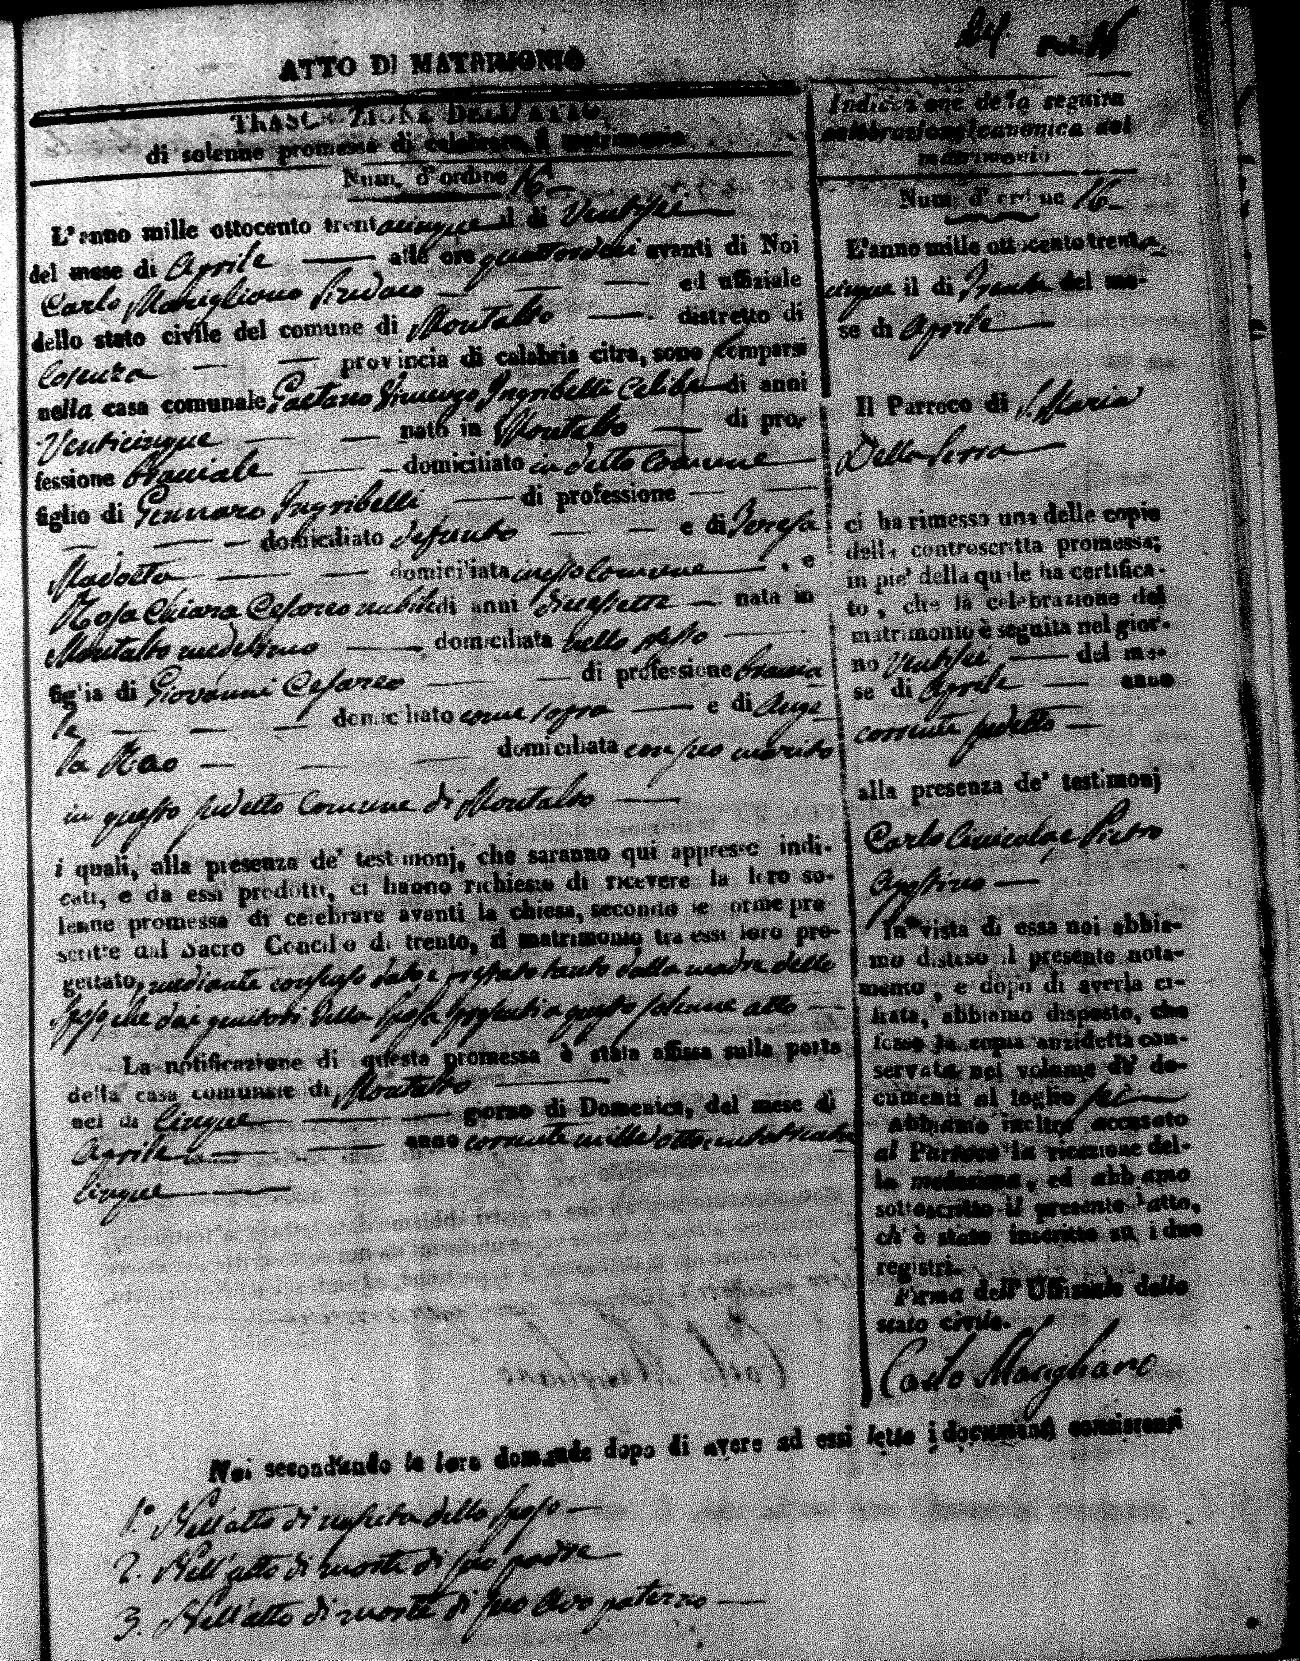 Fol.
ATTO DI MATRIMONIO
TRASCRIZIONE DELL'ATTO
di solenne promessa di celebrare il matrimonio
Num. d'ordine 16
L'anno mille ottocento trentacinque il di Ventisei
del mese di Aprile alle ore quattordici avanti di Noi
Carlo Marigliano Sindaco ed uffiziale
dello stato civile del comune di Montalto distretto di
Cosenza provincia di calabria citra, sono comparsi
nella casa comunale Gaetano Vincenzo Ingribelli Celibe di anni
Venticinque nato in Montalto di pro-
fessione Bracciale domiciliato in detto Comune
figlio di Gennaro Ingribelli di professione
domiciliato defunto e di Teresa
domiciliata in esso Comune, e
Rosa Chiara Cesareo nubile di anni diecisette nata in
Montalto medesimo domiciliata nello stesso
figlia di Giovanni Cesareo di professione braccia
le domiciliato come sopra e di Ange
la Rao domiciliata con suo marito
in questo sudetto Comune di Montalto
i quali, alla presenza de' testimonj, che saranno qui appresso indi-
cati, e da essi prodotti, ci hanno richiesto di ricevere la loro so-
lenne promessa di celebrare avanti la chiesa, secondo le forme pre
scritte dal Sacro Concilio di trento, il matrimonio tra essi loro pro-
gettato, mediante consenso dato e prestato tanto dalla madre dello
Sposo che dai genitori della Sposa a questo solenne atto
La notificazione di questa promessa è stata affissa sulla porta
della casa comunale di Montalto
nel di Cinque giorno di Domenica, del mese di
Aprile anno corrente mille ottocento trenta
Cinque
Indicazione della seguita
celebrazione canonica del
matrimonio
Num. d'ordine 16
L'anno mille ottocento trenta
cinque il di Trenta del me-
se di Aprile
Il Parroco di S. Maria
Della Serra
ci ha rimesso una delle copie
della controscritta promessa;
in pie' della quale ha certifica-
to, che la celebrazione del
matrimonio è seguita nel gior-
no Ventisei del me-
se di Aprile anno
corrente sudetto
alla presenza de' testimonj
Carlo e Pietro
Agostino
In vista di essa noi abbia-
mo disteso il presente nota-
mento; e dopo di averla ci-
frata, abbiamo disposto, che
fosse la copia anzidetta con-
servata nel volume di' do-
cumenti al foglio sei
abbiamo inoltre accusato
al Parroco la ricezione del-
la medesima, ed abbiamo
sottoscritto il presente atto,
ch' è stato inscritto su i due
registri.
Firma dell' Uffiziale dello
stato civile.
Carlo Marigliano
Noi secondando la loro domanda dopo di avere ad essi letto i documenti consistenti
1.° Nell'atto di nascita dello sposo
2. Nell'atto di morte di suo padre
3. Nell'atto di morte di suo avo paterno